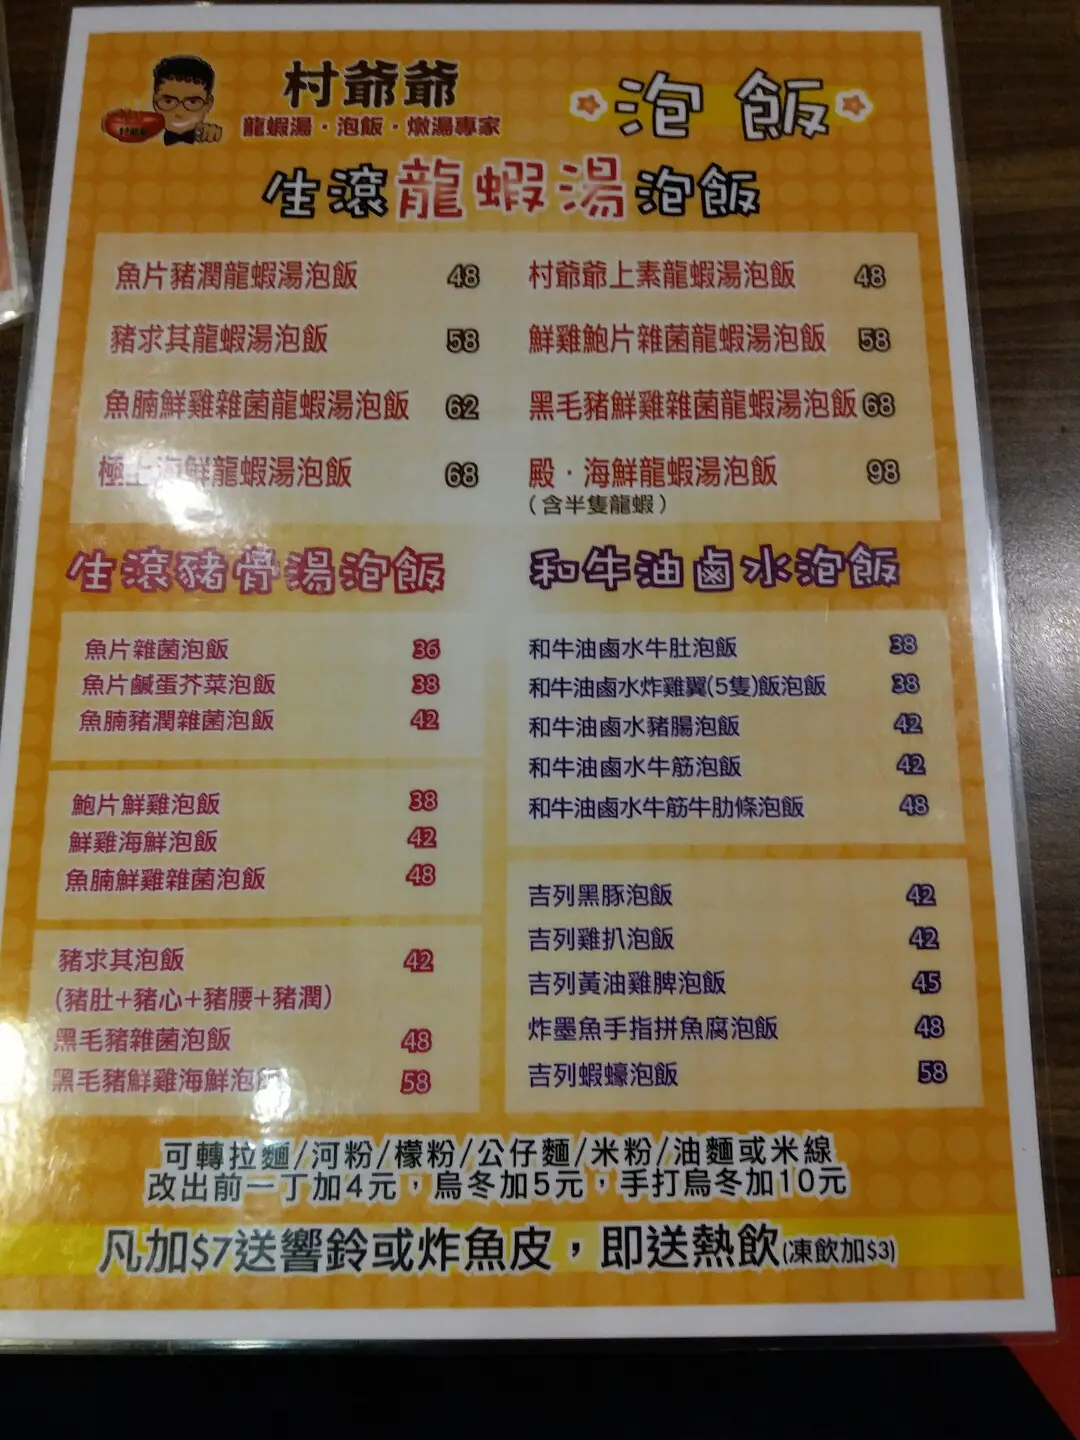 村爺爺
龍蝦湯·泡飯·燉湯專家
泡飯
生滾龍蝦湯泡飯
魚片豬潤龍蝦湯泡飯 48
豬求其龍蝦湯泡飯 58
魚腩鮮雞雜菌龍蝦湯泡飯 62
極上海鮮龍蝦湯泡飯 68
村爺爺上素龍蝦湯泡飯 48
鮮雞鮑片雜菌龍蝦湯泡飯 58
黑毛豬鮮雞雜菌龍蝦湯泡飯 68
殿·海鮮龍蝦湯泡飯 98
(含半隻龍蝦)
生滾豬骨湯泡飯
魚片雜菌泡飯 36
魚片鹹蛋芥菜泡飯 38
魚腩豬潤雜菌泡飯 42
鮑片鮮雞泡飯 38
鮮雞海鮮泡飯 42
魚腩鮮雞雜菌泡飯 48
豬求其泡飯 42
(豬肚+豬心+豬腰+豬潤)
黑毛豬雜菌泡飯 48
黑毛豬鮮雞海鮮泡飯 58
和牛油鹵水泡飯
和牛油鹵水牛肚泡飯 38
和牛油鹵水炸雞翼(5隻)飯泡飯 38
和牛油鹵水豬腸泡飯 42
和牛油鹵水牛筋泡飯 42
和牛油鹵水牛筋牛肋條泡飯 48
吉列黑豚泡飯 42
吉列雞扒泡飯 42
吉列黃油雞脾泡飯 45
炸墨魚手指拼魚腐泡飯 48
吉列蝦蠔泡飯 58
可轉拉麵/河粉/檬粉/公仔麵/米粉/油麵或米線
改出前一丁加4元，烏冬加5元，手打烏冬加10元
凡加$7送響鈴或炸魚皮，即送熱飲(凍飲加$3)